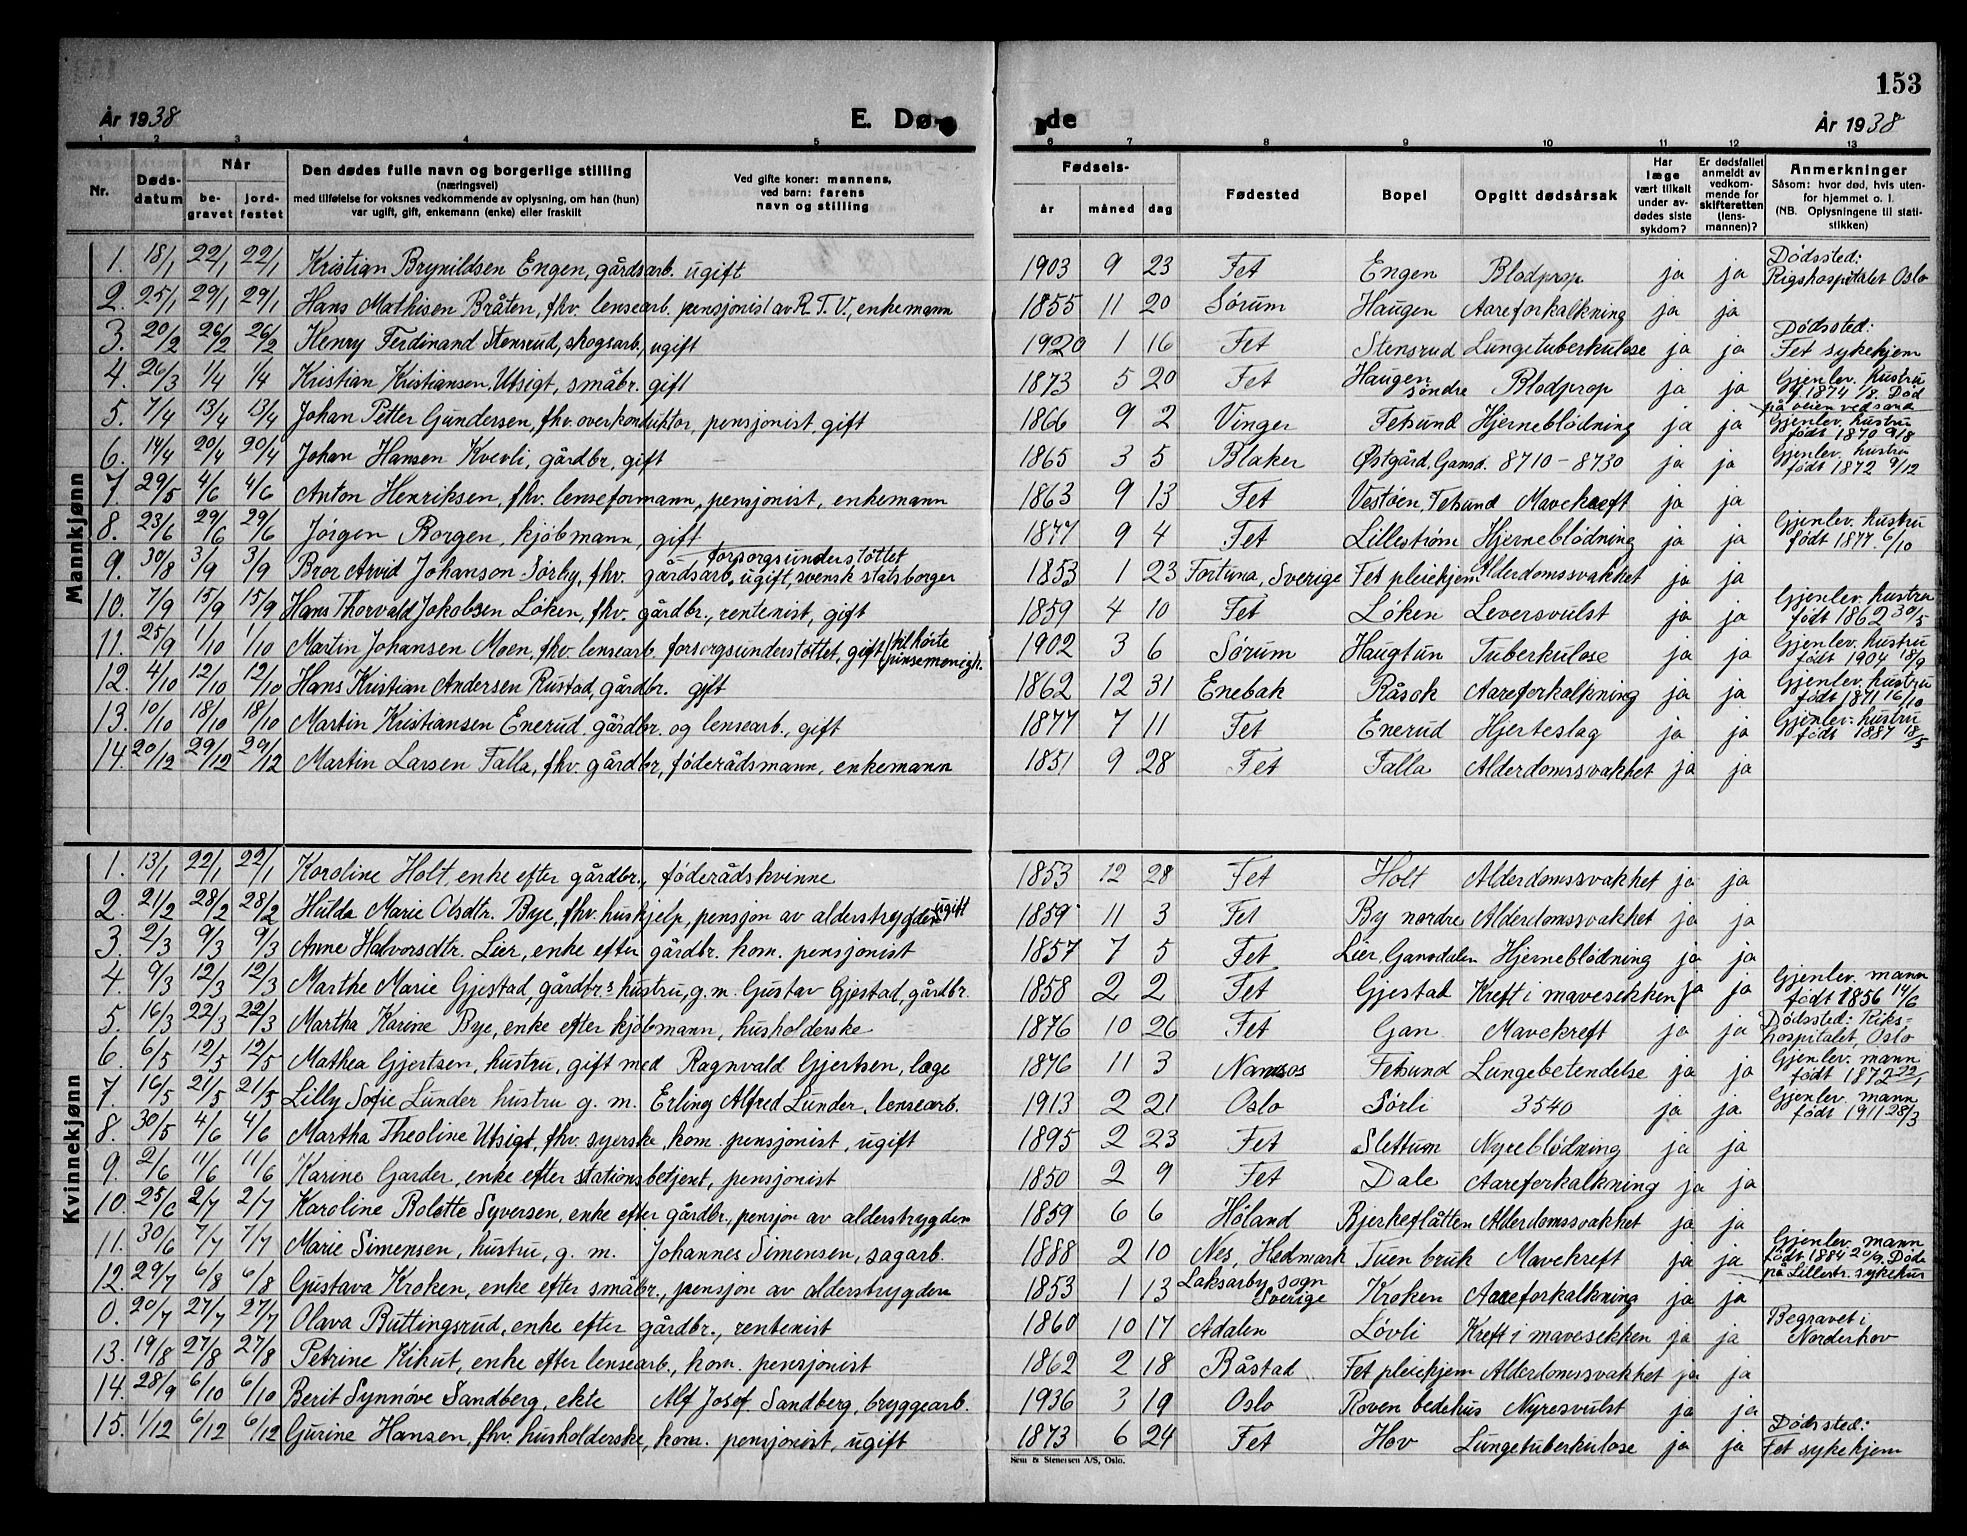 153
År 1938 E. Dø- de År 1938
1 2 3 4 5 6 7 8 9 10 11 12 13
Nr. Døds-datum Når be-gravet jord-festet Den dødes fulle navn og borgerlige stilling (næringsvei) med tilføielse for voksnes vedkommende av oplysning, om han (hun) var ugift, gift, enkemann (enke) eller fraskilt Ved gifte koner: mannens, ved barn: farens navn og stilling Fødsels- år måned dag Fødested Bopel Opgitt dødsårsak Har læge vært tilkalt under av-dødes siste sykdom? Er dødsfallet anmeldt av vedkom-mende for skifteretten (lens-mannen)? Anmerkninger Såsom: hvor død, hvis uten-for hjemmet o. l. (NB. Oplysningene til stati-stikken)
Mannkjønn
1. 18/1 22/1 22/1 Kristian Brynildsen Engen, gårdsarb. ugift 1903 9 23 Fet Engen Blodprop ja ja Dødssted: Rigshospitalet Oslo
2. 25/1 29/1 29/1 Hans Mathisen Bråten, fhv. lensearb. pensjonist av R.T.V., enkemann 1855 11 20 Sørum Haugen Aareforkalkning ja ja
3. 20/2 26/2 26/2 Henry Ferdinand Stensrud, skogsarb, ugift 1920 1 16 Fet Stensrud Lungetuberkulose ja ja Dødssted: Fet sykehjem
4. 26/3 1/4 1/4 Kristian Kristiansen Utsigt, småbr. gift 1873 5 20 Fet Haugen søndre Blodprop ja ja Gjenlev. hustru f. 1874 1/8. Død på veien ved sand
5. 7/4 13/4 13/4 Johan Petter Gundersen, fhv. overkonduktør, pensjonist, gift 1866 9 2 Vinger Fetsund Hjerneblødning ja ja Gjenlev. hustru født 1870 9/8
6. 14/4 20/4 20/4 Johan Hansen Kvevli, gårdbr, gift 1865 3 5 Blaker Østgård, Gansd. 8710 - 8730 ja ja Gjenlev. hustru født 1872 9/12
7. 29/5 4/6 4/6 Anton Henriksen, fhv. lenseformann, pensjonist, enkemann 1863 9 13 Fet Vestøen, Fetsund Mavekreft ja ja
8. 23/6 29/6 29/6 Jørgen Borgen, kjøbmann, gift 1877 9 4 Fet Lillestrøm Hjerneblødning ja ja Gjenlev. hustru født 1877 6/10
9. 30/8 3/9 3/9 Bror Arvid Johanson Sørby, fhv. gårdsarb. forsorgsunderstøttet ugift, svensk statsborger 1853 1 23 Fortuna, Sverige Fet pleiehjem Alderdomssvakhet ja ja
10. 7/9 15/9 15/9 Hans Thorvald Jakobsen Løken, fhv. gårdbr., rentenist, gift 1859 4 10 Fet Løken Leversvulst ja ja Gjenlev. hustru født 1862 30/5
11. 25/9 1/10 1/10 Martin Johansen Moen, fhv. lensearb. forsorgsunderstøttet, gift (tilhørte pinsemenigh. 1902 3 6 Sørum Haugtun Tuberkulose ja ja Gjenlev. hustru født 1904 18/9
12. 4/10 12/10 12/10 Hans Kristian Andersen Rustad, gårdbr. gift 1862 12 31 Enebak Råsok Aareforkalkning ja ja Gjenlev. hustru født 1871 16/10
13. 10/10 18/10 18/10 Martin Kristiansen Enerud. gårdbr. og lensearb., gift 1877 7 11 Fet Enerud Hjerteslag ja ja Gjenlev. hustru født 1887 18/5
14. 20/12 29/12 29/12 Martin Larsen Falla, fhv. gårdbr, føderådsmann, enkemann 1851 9 28 Fet Falla Alderdomssvakhet ja ja
Kvinnekjønn
1. 13/1 22/1 22/1 Karoline Holt enke efter gårdbr., føderådskvinne 1853 12 28 Fet Holt Alderdomssvakhet ja ja
2. 21/2 28/2 28/2 Hulda Marie Olsdtr. Bye, fhv. hushjelp, pensjon av alderstrygden ugift 1859 11 3 Fet By nordre Alderdomssvakhet ja ja
3. 2/3 9/3 9/3 Anne Halvorsdtr. Lier, enke efter gårdbr. kom. pensjonist 1857 7 5 Fet Lier, Gansdalen Hjerneblødning ja ja
4. 9/3 12/3 12/3 Marthe Marie Gjestad, gårdbr.s hustru, g. m. Gustav Gjestad, gårdbr. 1858 2 2 Fet Gjestad Kreft i mavesekken ja ja Gjenlev. mann født 1856 14/6
5. 16/3 22/3 22/3 Martha Karine Bye, enke efter kjøbmann, husholderske 1876 10 26 Fet Gan Mavekreft ja ja Dødssted: Riks-hospitalet, Oslo
6. 6/5 12/5 12/5 Mathea Gjertsen, hustru, gift med Ragnvald Gjertsen, læge 1876 11 3 Namsos Fetsund Lungebetendelse ja ja Gjenlev. mann født 1872 22/1
7. 16/5 21/5 21/5 Lilly Sofie Lunder hustru g. m. Erling Alfred Lunder, lensearb. 1913 2 21 Oslo Sørli 3540 ja ja Gjenlev. mann født 1911 28/3
8. 30/5 4/6 4/6 Martha Theoline Utsigt, fhv. syerske, kom. pensjonist, ugift 1895 2 23 Fet Slettum Nyreblødning ja ja
9. 2/6 11/6 11/6 Karine Garder, enke efter stationsbetjent, pensjonist 1850 2 9 Fet Dale Aareforkalkning ja ja
10. 25/6 2/7 2/7 Karoline Bolette Syversen, enke efter gårdbr., pensjon av alderstrygden 1859 6 6 Høland Bjerkeflåtten Alderdomssvakhet ja ja
11. 30/6 7/7 7/7 Marie Simensen, hustru, g. m. Johannes Simensen, sagarb. 1888 2 10 Nes, Hedmark Tuen bruk Mavekreft ja ja Gjenlev. mann født 1884 20/9. Død på Lillestr. sykehus
12. 29/7 6/8 6/8 Gustava Kroken, enke efter småbr., pensjon av alderstrygden 1853 1 13 Laksarby sogn Sverige Kroken Aareforkalkning ja ja
0. 20/7 27/7 27/7 Olava Buttingsrud, enke efter gårdbr., rentenist 1860 10 17 Ådalen Løvli Kreft i mavesekken ja ja Begravet i Norderhov
13. 19/8 27/8 27/8 Petrine Kihut, enke efter lensearb., kom. pensjonist 1862 2 18 Båstad Fet pleiehjem Alderdomssvakhet ja ja
14. 28/9 6/10 6/10 Berit Synnøve Sandberg, ekte Alf Josef Sandberg, bryggearb. 1936 3 19 Oslo Roven bedehus Nyresvulst ja ja
15. 1/12 6/12 6/12 Gurine Hansen, fhv. husholderske, kom. pensjonist, ugift 1873 6 24 Fet Hov Lungetuberkulose ja ja Dødssted: Fet sykehjem
Sem & Stenersen A/S, Oslo.